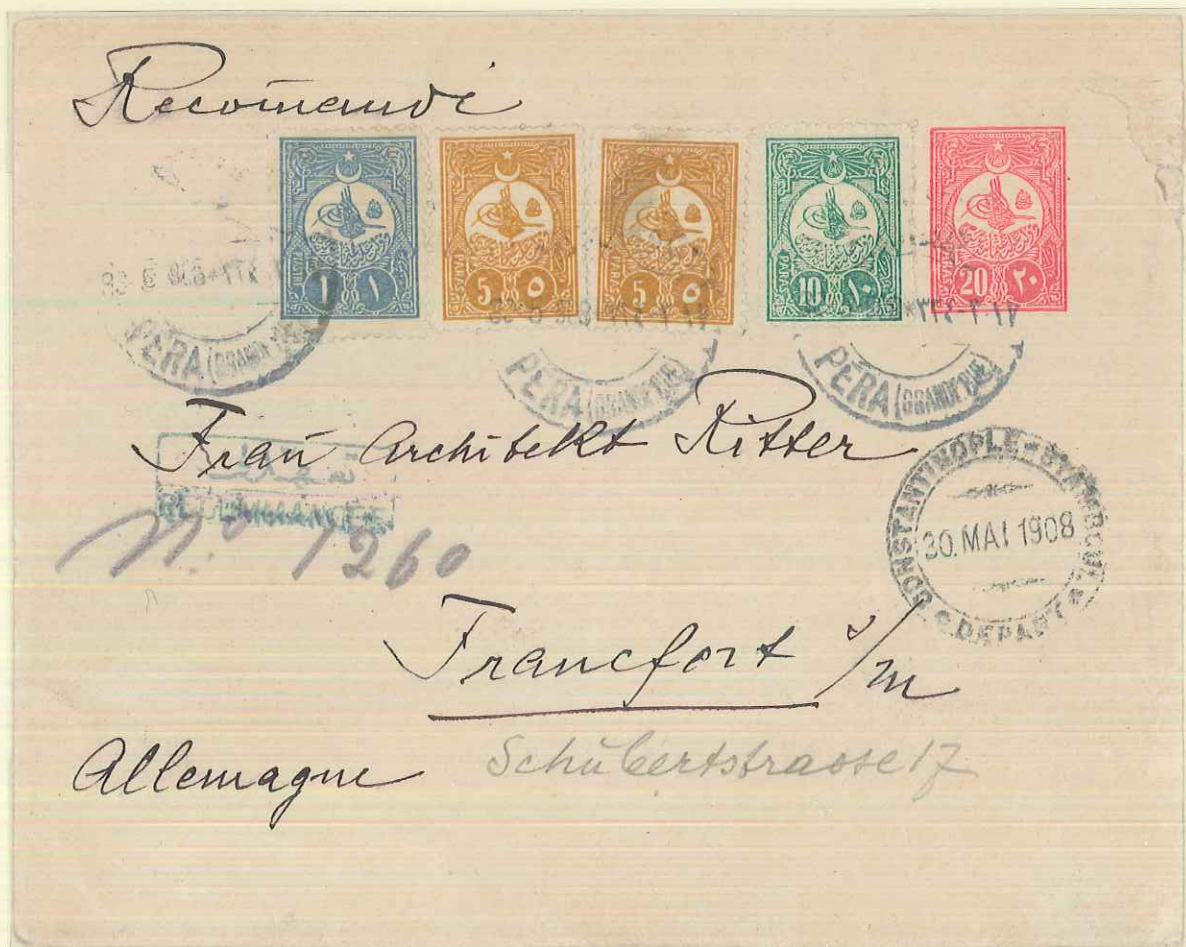 Recomandé
1 ١ 5 ٥ 5 ٥ 10 ١٠ 20 ٢٠
PÉRA (GRANDE RUE) PÉRA (GRANDE RUE) PÉRA (GRANDE RUE)
Frau Architekt Ritter
RECOMMANDÉE
No 1260
CONSTANTINOPLE-STAMBOUL
30. MAI 1908
DÉPART
Francfort a/m
Schubertstrasse 17
Allemagne